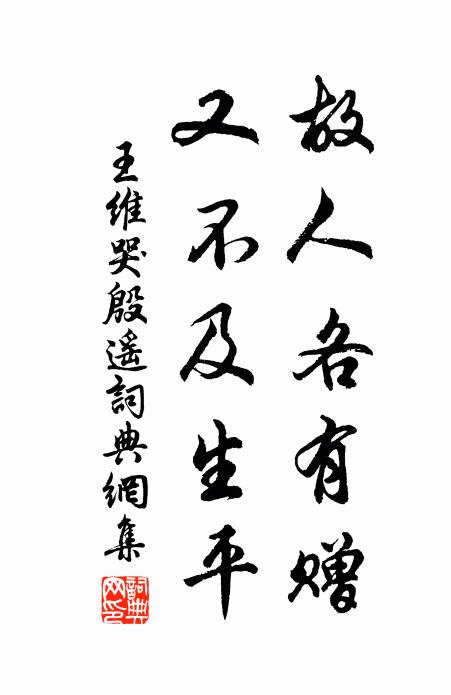 故人各有贈
又不及生平
王維哭殷遥詞典網集
詞典網印